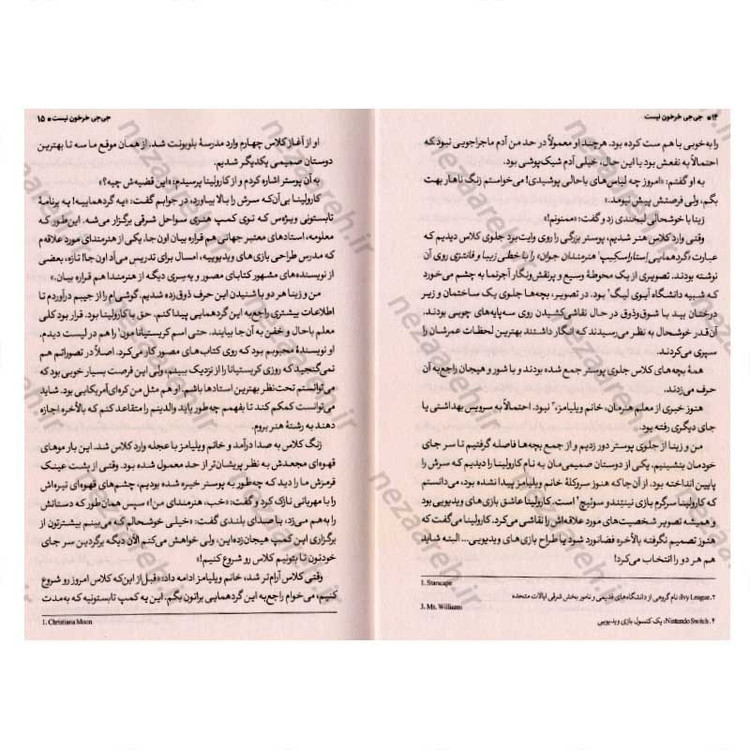 ۱۴ • جی‌جی خرخون نیست
را به‌خوبی با هم ست کرده بود. هرچند او معمولاً در حد من آدم ماجراجویی نبود که
احتمالاً به نفعش بود با این حال، خیلی آدم شیک‌پوشی بود.
به او گفتم: «امروز چه لباس‌های باحالی پوشیدی! می‌خواستم زنگ ناهار بهت
بگم، ولی فرصتش پیش نیومد.»
زینا با خوشحالی لبخندی زد و گفت: «ممنونم!»
وقتی وارد کلاس هنر شدیم، پوستر بزرگی را روی وایت‌برد جلوی کلاس دیدیم که
عبارت «گردهمایی استاراسکیپ¹ هنرمندان جوان» را با خطی زیبا و فانتزی روی آن
نوشته بودند. تصویری از یک محوطهٔ وسیع و پرنقش‌ونگار آجرنما به چشم می‌خورد
که شبیه دانشگاه آیوی لیگ² بود. در تصویر، بچه‌ها جلوی یک ساختمان و زیر
درختان بید با شوق‌وذوق در حال نقاشی‌کشیدن روی سه‌پایه‌های چوبی بودند.
آن‌قدر خوشحال به نظر می‌رسیدند که انگار داشتند بهترین لحظات عمرشان را
سپری می‌کردند.
همهٔ بچه‌های کلاس جلوی پوستر جمع شده بودند و با شور و هیجان راجع‌به آن
حرف می‌زدند.
هنوز خبری از معلم هنرمان، خانم ویلیامز³، نبود. احتمالاً به سرویس بهداشتی یا
جای دیگری رفته بود.
من و زینا از جلوی پوستر دور زدیم و از جمع بچه‌ها فاصله گرفتیم تا سر جای
خودمان بنشینیم، یکی از دوستان صمیمی‌مان به نام کارولینا را دیدیم که سرش را
پایین انداخته بود. از آن‌جا که هنوز سروکلهٔ خانم ویلیامز پیدا نشده بود، می‌دانستم
که کارولینا سرگرم بازی نینتندو سوئیچ⁴ است. کارولینا عاشق بازی‌های ویدیویی بود
و همیشه تصویر شخصیت‌های مورد علاقه‌اش را نقاشی می‌کرد. کارولینا می‌گفت که
هنوز تصمیم نگرفته بالأخره فضانورد شود یا طراح بازی‌های ویدیویی... البته شاید
هم هر دو را انتخاب می‌کرد!
1. Starscape
۲. Ivy League: نام گروهی از دانشگاه‌های قدیمی و نامور بخش شرقی ایالات متحده
3. Ms. Williams
۴. Nintendo Switch: یک کنسول بازی ویدیویی
جی‌جی خرخون نیست • ۱۵
او از آغاز کلاس چهارم وارد مدرسهٔ بلوبونت شد. از همان موقع ما سه تا بهترین
دوستان صمیمی یکدیگر شدیم.
به آن پوستر اشاره کردم و از کارولینا پرسیدم: «این قضیه‌ش چیه؟»
کارولینا بی‌آن‌که سرش را بالا بیاورد، در جوابم گفت: «یه گردهماییه! یه برنامهٔ
تابستونی ویژه‌س که توی کمپ هنری سواحل شرقی برگزار می‌شه. این‌طور که
معلومه، استادهای معتبر جهانی هم قراره بیان اون‌جا. یکی از هنرمندای مورد علاقه‌م
که مدرس طراحی بازی‌های ویدیوییه، امسال برای تدریس می‌آد اون‌جا! تازه، بعضی
از نویسنده‌های مشهور کتابای مصور و یه‌سری دیگه از هنرمندا هم قراره بیان.»
من و زینا هر دو با شنیدن این حرف ذوق‌زده شدیم. گوشی‌ام را از جیبم درآوردم تا
اطلاعات بیشتری راجع‌به این گردهمایی پیدا کنم. حق با کارولینا بود. قرار بود کلی
معلم باحال و خفن به آن‌جا بیایند. حتی اسم کریستیانا مون¹ را هم در لیست دیدم.
او نویسندهٔ محبوبم بود که روی کتاب‌های مصور کار می‌کرد. اصلاً در تصوراتم هم
نمی‌گنجید که روزی کریستیانا را از نزدیک ببینم، ولی این فرصت بسیار خوبی بود که
می‌توانستم تحت‌نظر بهترین استادها باشم. او هم مثل من کره‌ای‌آمریکایی بود. شاید
می‌توانست کمکم کند تا بفهمم چه‌طور باید والدینم را متقاعد کنم که بالأخره اجازه
دهند به رشتهٔ هنر بروم.
زنگ کلاس به صدا درآمد و خانم ویلیامز با عجله وارد کلاس شد. این بار موهای
قهوه‌ای مجعدش به نظر پریشان‌تر از حد معمول شده بود. وقتی از پشت عینک
قرمزش ما را دید که چه‌طور به پوستر خیره شده بودیم، چشم‌های قهوه‌ای تیره‌اش
را با مهربانی نازک کرد و گفت: «خب، هنرمندای من!» سپس همان‌طور که دستانش
را به‌هم می‌زد، با صدای بلندی گفت: «خیلی خوشحالم که می‌بینم بیشترتون از
برگزاری این کمپ هیجان‌زده‌این، ولی خواهش می‌کنم الآن دیگه برگردین سر جای
خودتون تا بتونیم کلاس رو شروع کنیم!»
وقتی کلاس آرام‌تر شد، خانم ویلیامز ادامه داد: «قبل از این‌که کلاس امروز رو شروع
کنیم، می‌خوام راجع‌به این گردهمایی براتون بگم. این یه کمپ تابستونیه که به‌مدت
1. Christiana Moon
nezaareh.ir